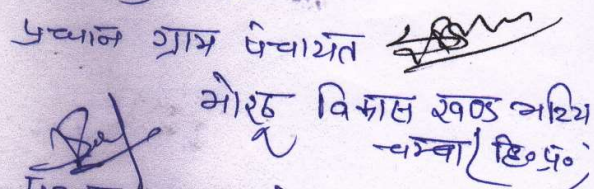 प्रधान ग्राम पंचायत
मोरठू विकास खण्ड भटिय
चम्बा (हि॰प्र॰)